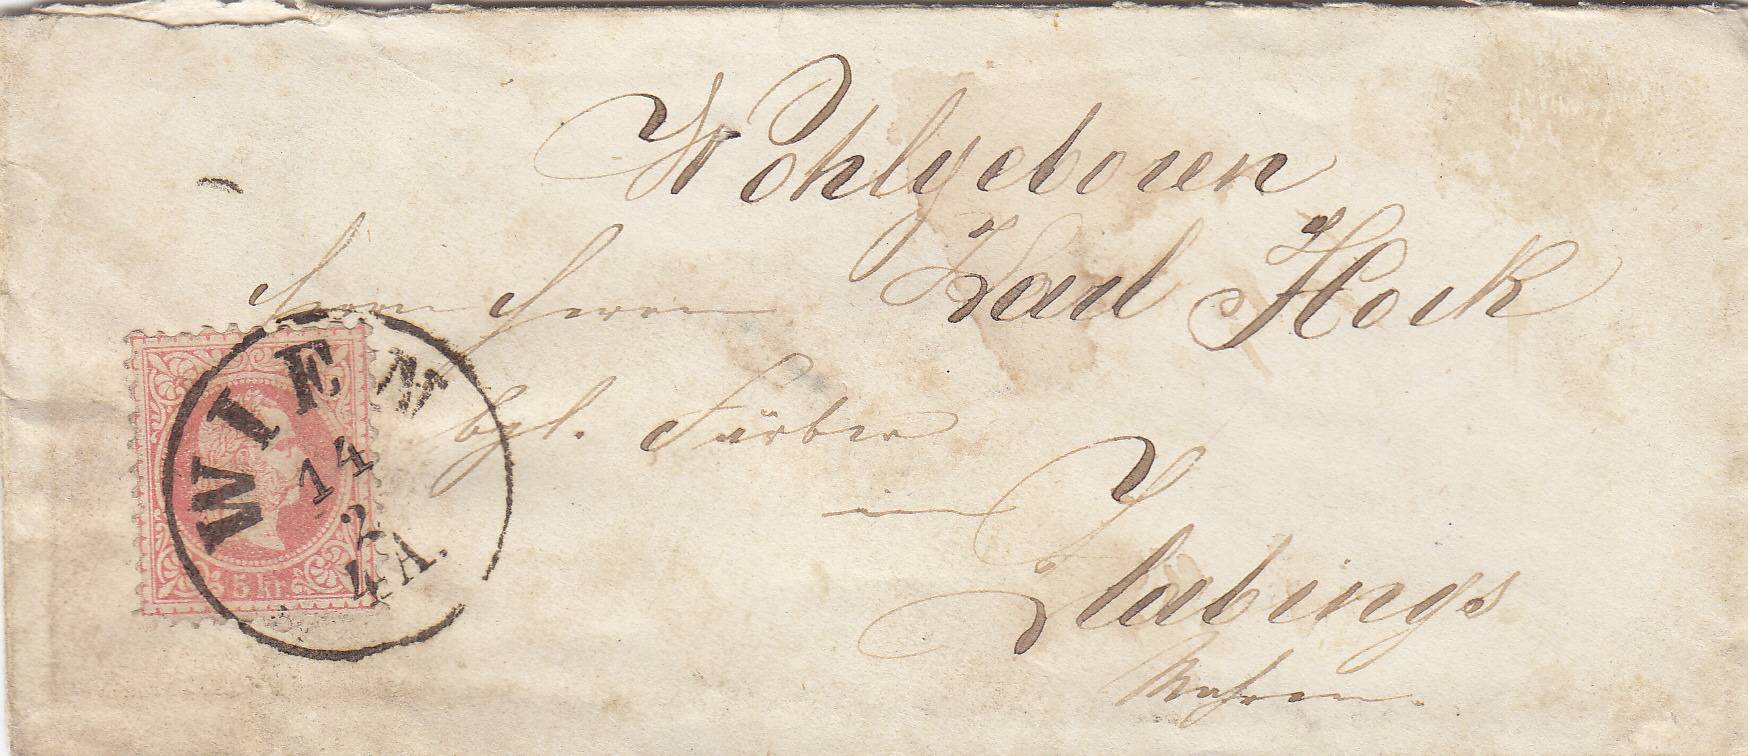 Wohlgeboren
Herrn Herrn Karl Hock
bgl. Färber
in Zlabings
Mähren.
WIEN
14
2
4 A.
5 kr